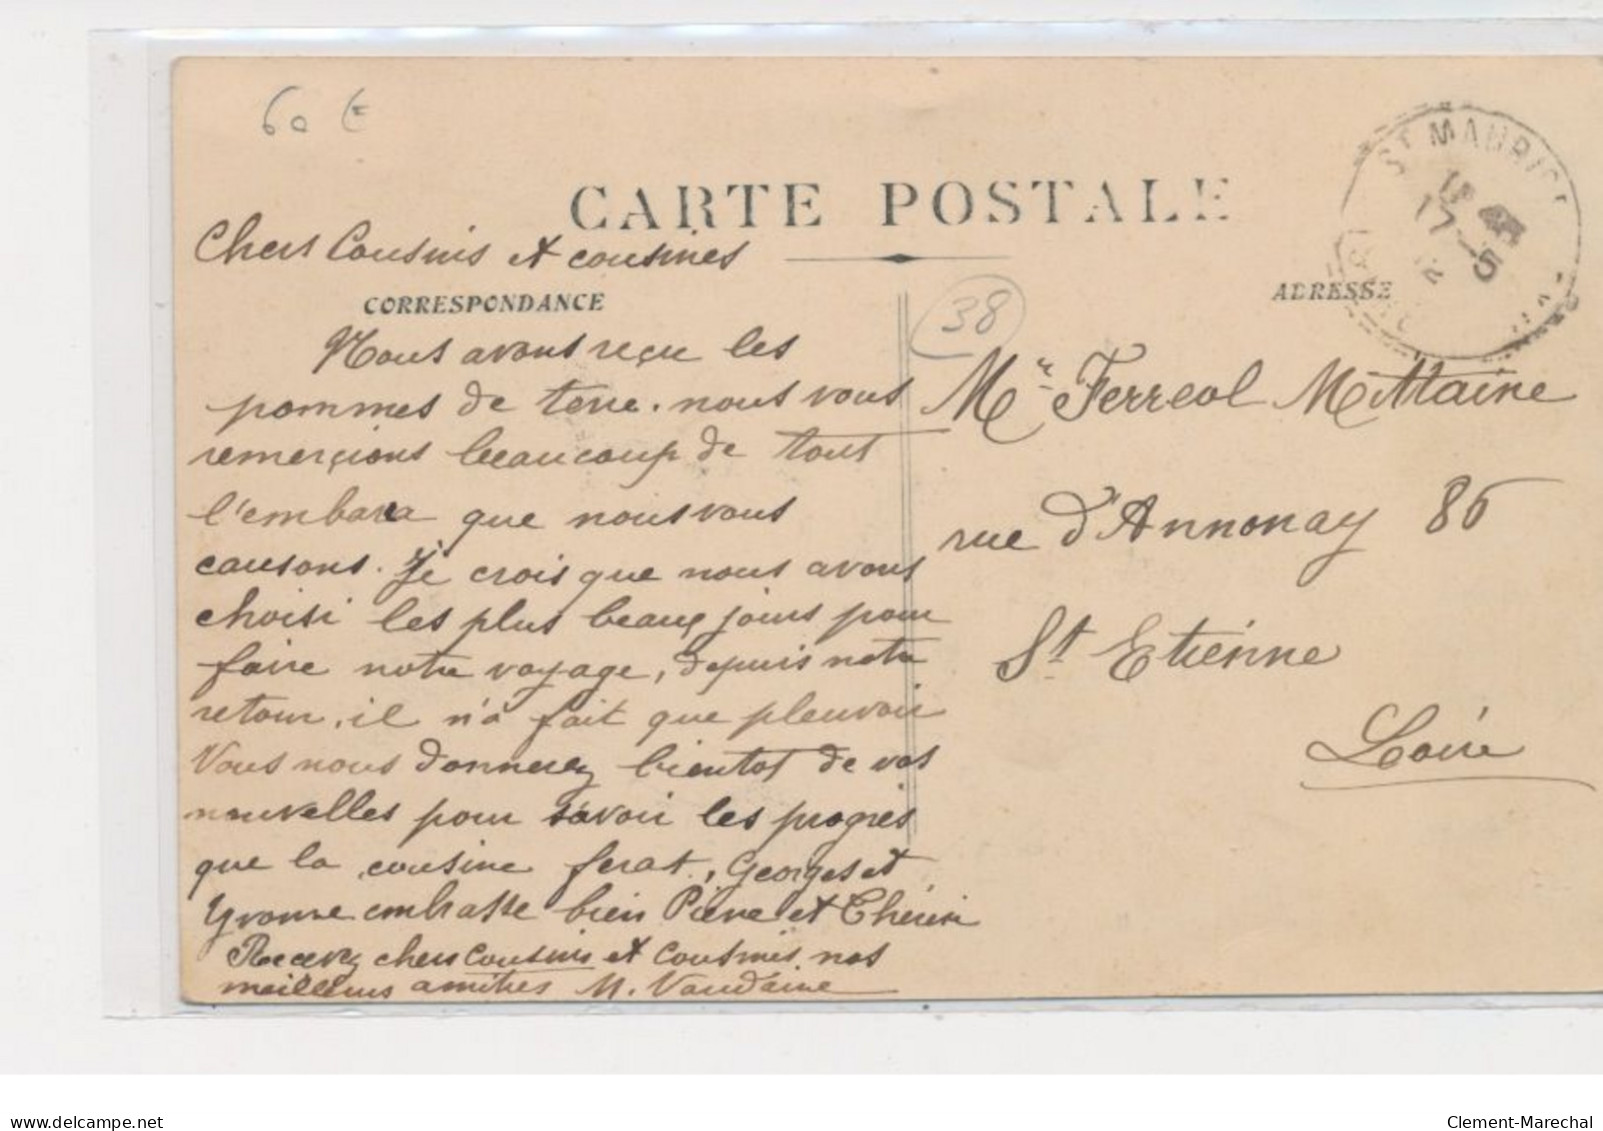 60 €
CARTE POSTALE
ST MAURICE
17 - 5
Chers Cousins et cousines
CORRESPONDANCE
ADRESSE
38
Nous avons reçu les
pommes de terre. nous vous
remerçions beaucoup de tout
l'embara que nous vous
causons. Je crois que nous avons
choisi les plus beaux jours pour
faire notre voyage, depuis notre
retour, il n'a fait que pleuvoir
Vous nous donnerez bientot de vos
nouvelles pour savoir les progrès
que la cousine ferat, Georges et
Yvonne embrasse bien Pierre et
Recevez chers cousins et cousines nos
meilleurs amitiés M. Vaudaine
Mr Ferreol Mittaine
rue d'Annonay 86
St Etienne
Loire
www.delcampe.net
Clement-Marechal